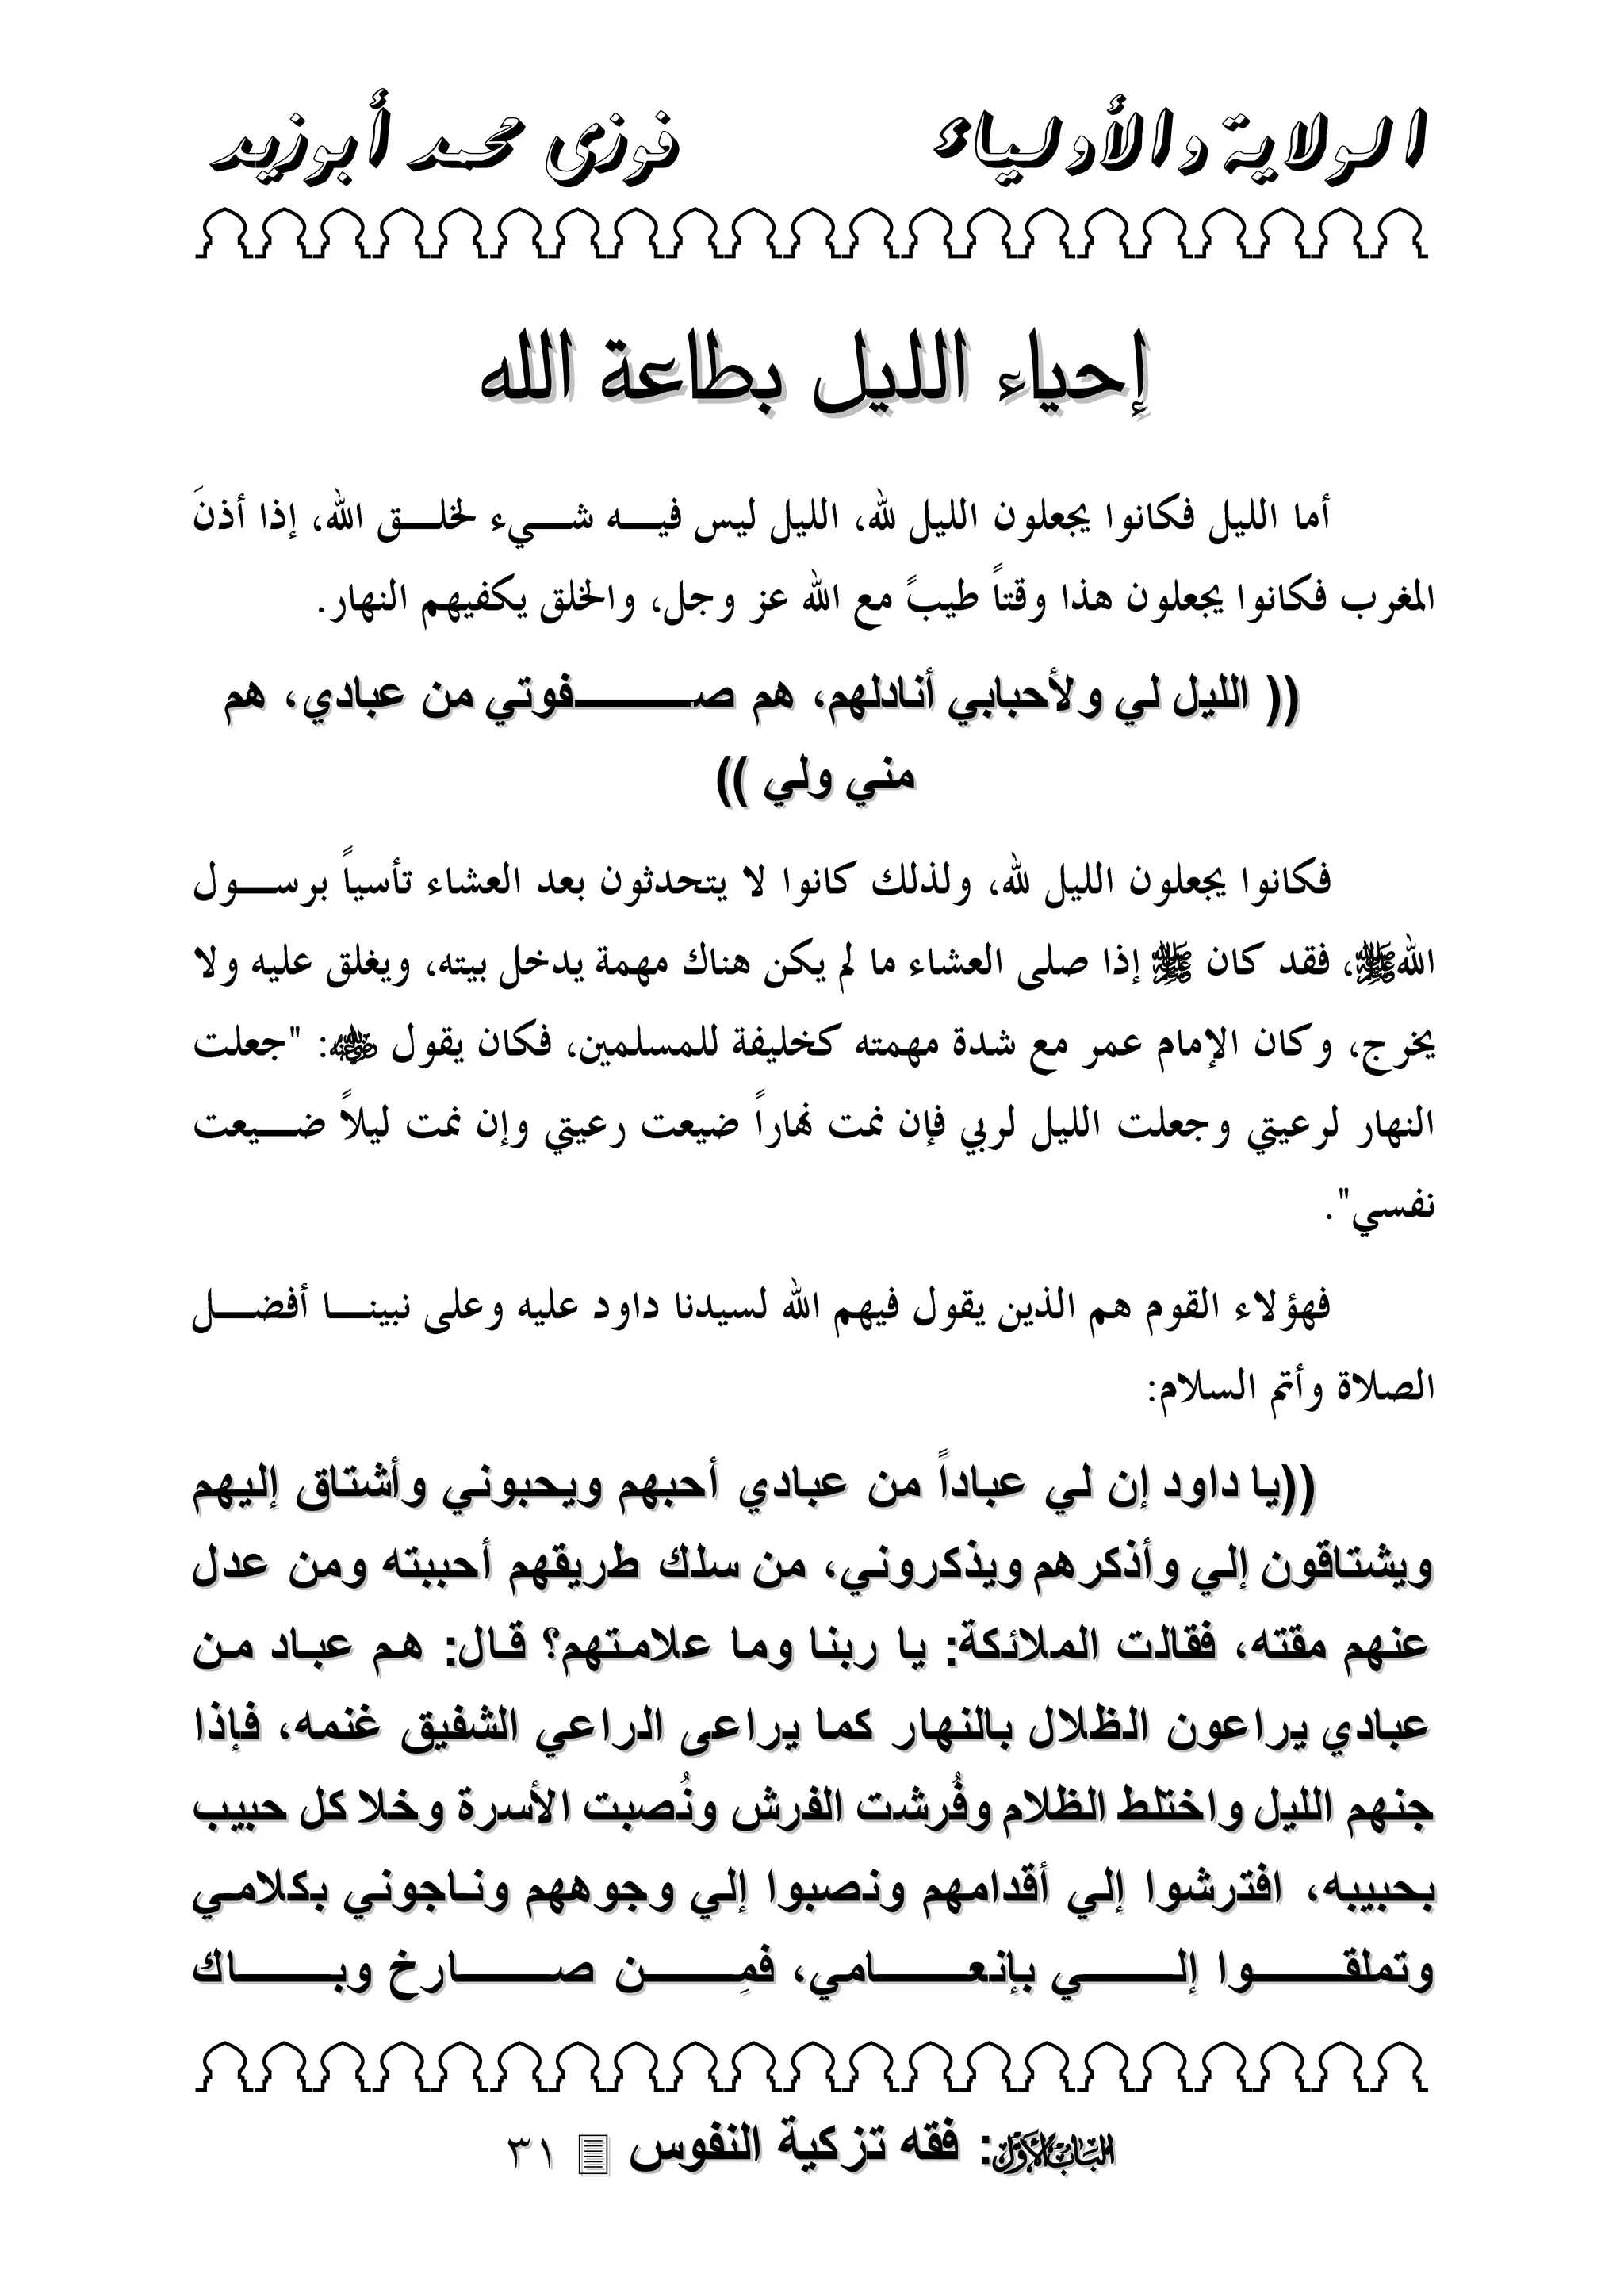 الولاية والأولياء فوزى محمد أبوزيد
إحياء الليل بطاعة الله
أما الليل فكانوا يجعلون الليل لله، الليل ليس فيـــه شـــيء لخلـــق الله، إذا أذنَ
المغرب فكانوا يجعلون هذا وقتاً طيبً مع الله عز وجل، والخلق يكفيهم النهار.
(( الليل لي ولأحبابي أنادلهم، هم صـــــــفوتي من عبادي، هم
مني ولي ))
فكانوا يجعلون الليل لله، ولذلك كانوا لا يتحدثون بعد العشاء تأسياً برســـول
الله ﷺ، فقد كان ﷺ إذا صلى العشاء ما لم يكن هناك مهمة يدخل بيته، ويغلق عليه ولا
يخرج، وكان الإمام عمر مع شدة مهمته كخليفة للمسلمين، فكان يقول ﵁: "جعلت
النهار لرعيتي وجعلت الليل لربي فإن نمت نهاراً ضيعت رعيتي وإن نمت ليلاً ضـــيعت
نفسي".
فهؤلاء القوم هم الذين يقول فيهم الله لسيدنا داود عليه وعلى نبينـــا أفضـــل
الصلاة وأتم السلام:
((يا داود إن لي عباداً من عبادي أحبهم ويحبوني وأشتاق إليهم
ويشتاقون إلي وأذكرهم ويذكروني، من سلك طريقهم أحببته ومن عدل
عنهم مقته، فقالت الملائكة: يا ربنا وما علامتهم؟ قال: هم عباد من
عبادي يراعون الظلال بالنهار كما يراعى الراعي الشفيق غنمه، فإذا
جنهم الليل واختلط الظلام وفُرشت الفرش ونُصبت الأسرة وخلا كل حبيب
بحبيبه، افترشوا إلي أقدامهم ونصبوا إلي وجوههم وناجوني بكلامي
وتملقـــــوا إلـــــي بإنعـــــامي، فمِـــــن صـــــارخ وبـــــاك
الباب الأول: فقه تزكية النفوس ٣١